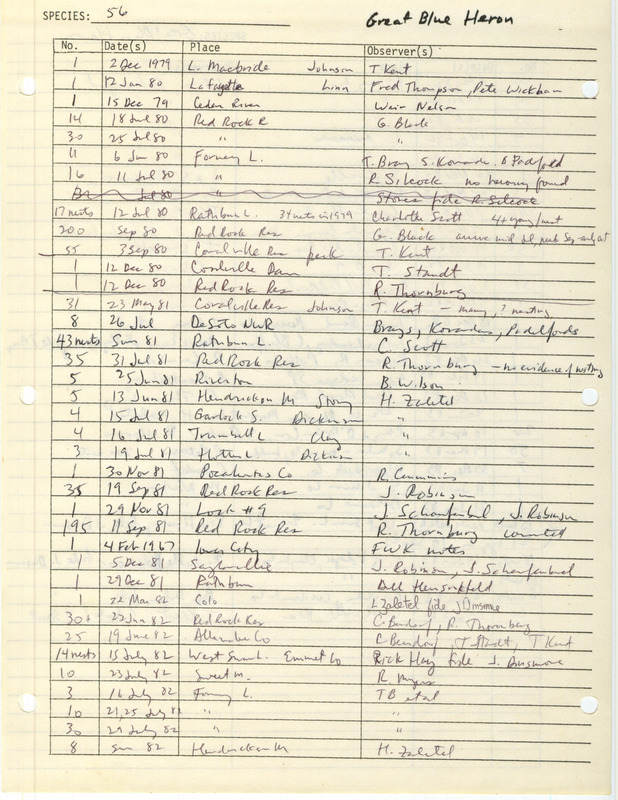 SPECIES: 56 Great Blue Heron
No. Date(s) Place Observer(s)
1 2 Dec 1979 L. Macbride Johnson T Kent
1 12 Jan 80 Lafayette Linn Fred Thompson, Pete Wickham
1 15 Dec 79 Cedar River Weir Nelson
14 18 Jul 80 Red Rock R G. Black
30 25 Jul 80 " "
11 6 Jun 80 Forney L. T. Bray S. Kovanda B Padelford
16 11 Jul 80 " R. Silcock no heronry found
Jul 80 " Stores fide R. Silcock
17 nests 12 Jul 80 Rathbun L. 34 nests in 1979 Charlotte Scott 4+ young/nest
200 Sep 80 Red Rock Res G. Black arrive mid Jul, peak Sep-early
55 3 Sep 80 Coralville Res peak T. Kent
1 12 Dec 80 Coralville Dam T. Staudt
1 12 Dec 80 Red Rock Res R. Thornburg
31 23 May 81 Coralville Res Johnson T. Kent - many, ? nesting
8 26 Jul DeSoto NWR Brays, Kovandas, Padelfords
43 nests Sum 81 Rathbun L. C. Scott
35 31 Jul 81 Red Rock Res R. Thornburg - no evidence of nesting
5 25 Jun 81 Riverton B. Wilson
5 13 Jun 81 Hendrickson M Story H. Zaletel
4 15 Jul 81 Garlock S. Dickinson "
4 16 Jul 81 Trumbull L Clay "
3 19 Jul 81 Hottes L Dickinson "
1 30 Nov 81 Pocahontas Co R. Cummins
35 19 Sep 81 Red Rock Res J. Robinson
1 29 Nov 81 Lock #9 J. Schaufenbuel, J. Robinson
195 11 Sep 81 Red Rock Res R. Thornburg counted
1 4 Feb 1967 Iowa City FWK notes
1 5 Dec 81 Saylorville J. Robinson, J. Schaufenbuel
1 29 Dec 81 Rathbun
1 22 Mar 82 Colo H Zaletel fide J Dinsmore
30+ 22 Jun 82 Red Rock Res C. Bendorf, R. Thornburg
25 19 June 82 Allamakee Co C Bendorf, T Staudt, T Kent
14 nests 15 July 82 West Swan L. Emmet Co Rick Hay fide J. Dinsmore
10 23 July 82 Sweet M. R. Myers
3 16 July 82 Forney L. TB et al
10 21,25 July 82 " "
30 29 July 82 " "
8 Sum 82 Hendrickson M H. Zaletel